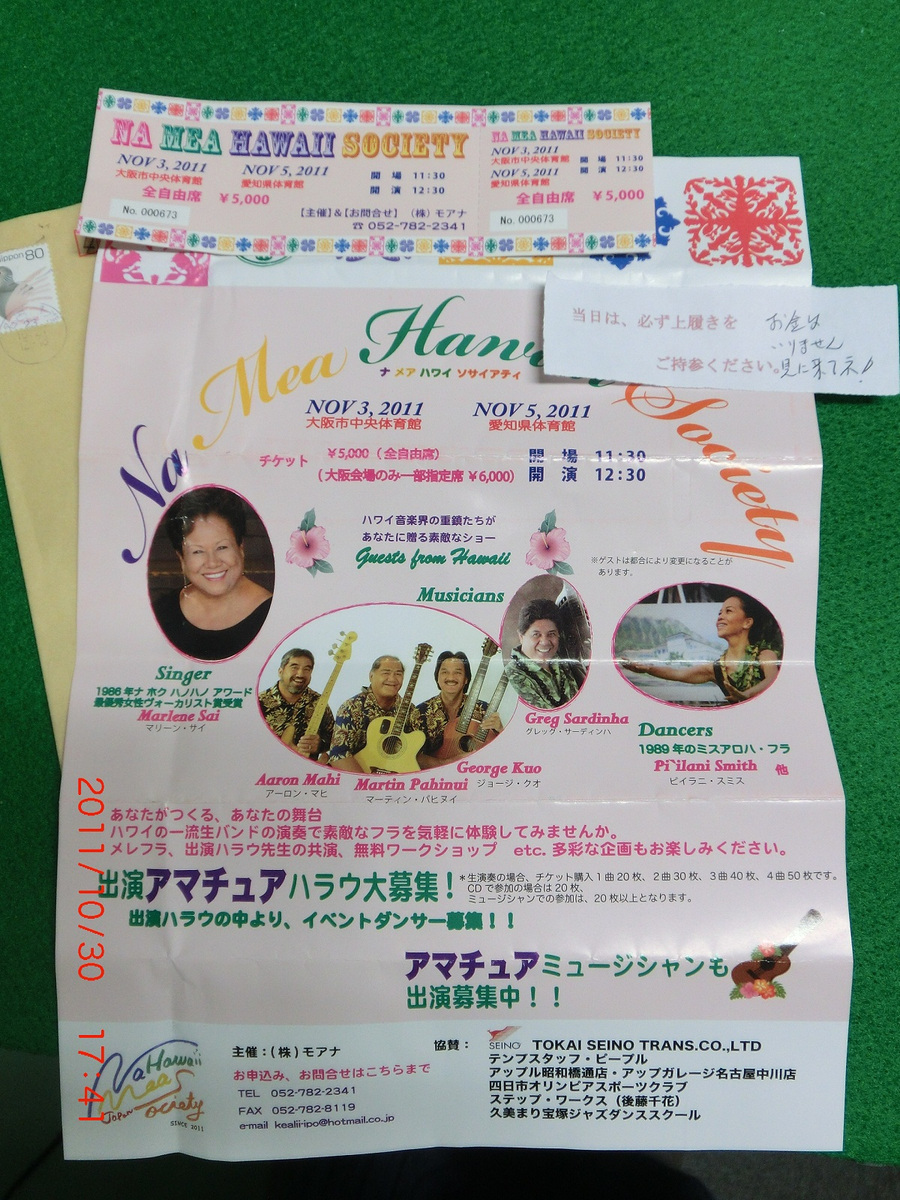 NA MEA HAWAII SOCIETY
NOV 3, 2011
大阪市中央体育館
NOV 5, 2011
愛知県体育館
開 場 11:30
開 演 12:30
全自由席 ¥5,000
No. 000673
【主催】&【お問合せ】 (株) モアナ
☎ 052-782-2341
NA MEA HAWAII SOCIETY
NOV 3, 2011
大阪市中央体育館
NOV 5, 2011
愛知県体育館
開 場 11:30
開 演 12:30
全自由席 ¥5,000
No. 000673
nippon 80
当日は、必ず上履きを
ご持参ください。
お金は
いりません
見に来てネ!
Na Mea Hawaii Society
ナ メア ハワイ ソサイアティ
NOV 3, 2011
大阪市中央体育館
NOV 5, 2011
愛知県体育館
チケット ¥5,000 (全自由席)
(大阪会場のみ一部指定席 ¥6,000)
開 場 11:30
開 演 12:30
ハワイ音楽界の重鎮たちが
あなたに贈る素敵なショー
Guests from Hawaii
※ゲストは都合により変更になることが
あります。
Musicians
Singer
1986年ナ ホク ハノハノ アワード
最優秀女性ヴォーカリスト賞受賞
Marlene Sai
マリーン・サイ
Aaron Mahi
アーロン・マヒ
Martin Pahinui
マーティン・パヒヌイ
George Kuo
ジョージ・クオ
Greg Sardinha
グレッグ・サーディンハ
Dancers
1989年のミスアロハ・フラ
Pi`ilani Smith 他
ピイラニ・スミス
あなたがつくる、あなたの舞台
ハワイの一流生バンドの演奏で素敵なフラを気軽に体験してみませんか。
メレフラ、出演ハラウ先生の共演、無料ワークショップ etc. 多彩な企画もお楽しみください。
出演アマチュアハラウ大募集!
*生演奏の場合、チケット購入1曲20枚、2曲30枚、3曲40枚、4曲50枚です。
CDで参加の場合は20枚、
ミュージシャンでの参加は、20枚以上となります。
出演ハラウの中より、イベントダンサー募集!!
アマチュアミュージシャンも
出演募集中!!
Na Hawaii
Maa Society
Japan
SINCE 2011
主催:(株)モアナ
お申込み、お問合せはこちらまで
TEL 052-782-2341
FAX 052-782-8119
e-mail kealii-ipo@hotmail.co.jp
協賛:
SEINO TOKAI SEINO TRANS.CO.,LTD
テンプスタッフ・ピープル
アップル昭和橋通店・アップガレージ名古屋中川店
四日市オリンピアスポーツクラブ
ステップ・ワークス(後藤千花)
久美まり宝塚ジャズダンススクール
2011/10/30 17:41